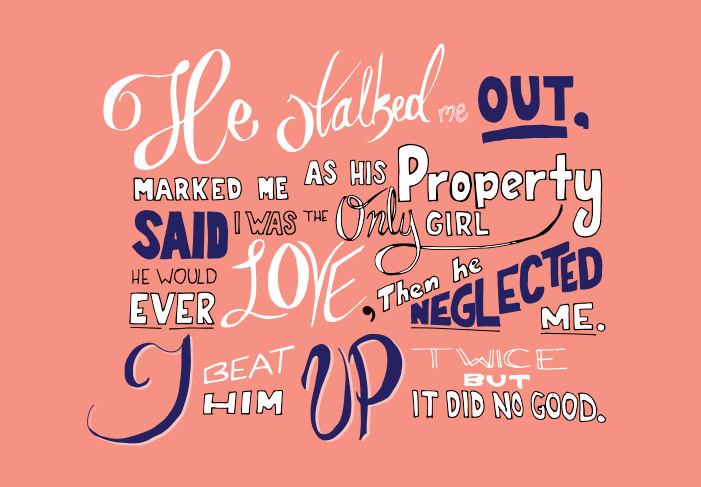 He stalked me OUT,
MARKED ME AS HIS Property
SAID I WAS THE Only GIRL
HE WOULD EVER LOVE, Then he NEGLECTED ME.
I BEAT HIM UP TWICE BUT IT DID NO GOOD.